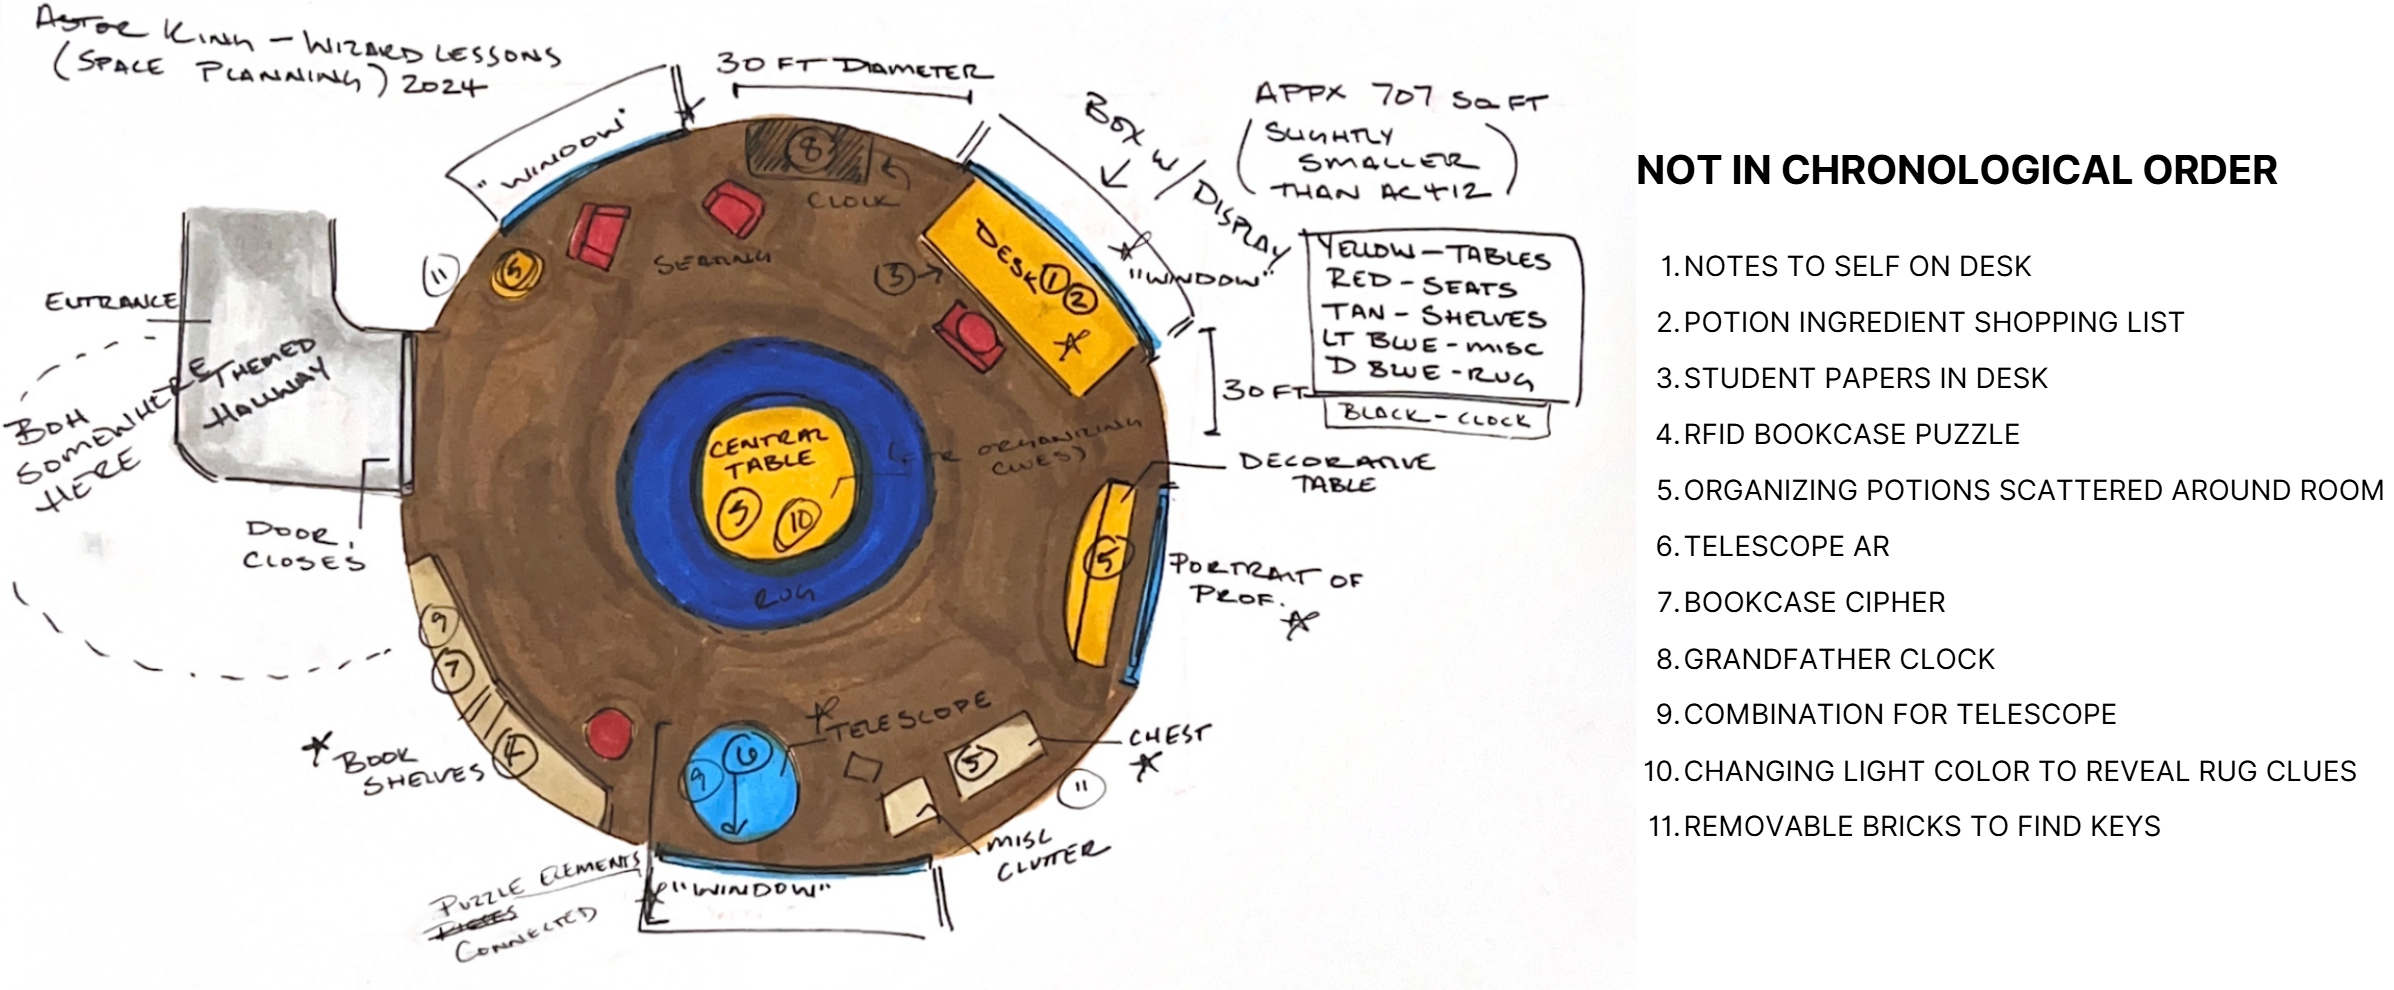 ASTOR KING - WIZARD LESSONS
(SPACE PLANNING) 2024
30 FT DIAMETER
"WINDOW"
8
CLOCK
SEATING
5
11
BOX W/ DISPLAY
APPX 707 SQ FT
(SLIGHTLY
SMALLER
THAN AC412)
DESK 1 2
3
"WINDOW"
YELLOW - TABLES
RED - SEATS
TAN - SHELVES
LT BLUE - MISC
D BLUE - RUG
BLACK - CLOCK
30 FT
ENTRANCE
THEMED
HALLWAY
BOH
SOMEWHERE
HERE
DOOR,
CLOSES
CENTRAL
TABLE
5 10
(FOR ORGANIZING
CLUES)
RUG
DECORATIVE
TABLE
5
PORTRAIT OF
PROF.
9
7
4
BOOK
SHELVES
TELESCOPE
6
9
5
CHEST
11
MISC
CLUTTER
"WINDOW"
PUZZLE ELEMENTS
PIECES
CONNECTED
NOT IN CHRONOLOGICAL ORDER
1. NOTES TO SELF ON DESK
2. POTION INGREDIENT SHOPPING LIST
3. STUDENT PAPERS IN DESK
4. RFID BOOKCASE PUZZLE
5. ORGANIZING POTIONS SCATTERED AROUND ROOM
6. TELESCOPE AR
7. BOOKCASE CIPHER
8. GRANDFATHER CLOCK
9. COMBINATION FOR TELESCOPE
10. CHANGING LIGHT COLOR TO REVEAL RUG CLUES
11. REMOVABLE BRICKS TO FIND KEYS